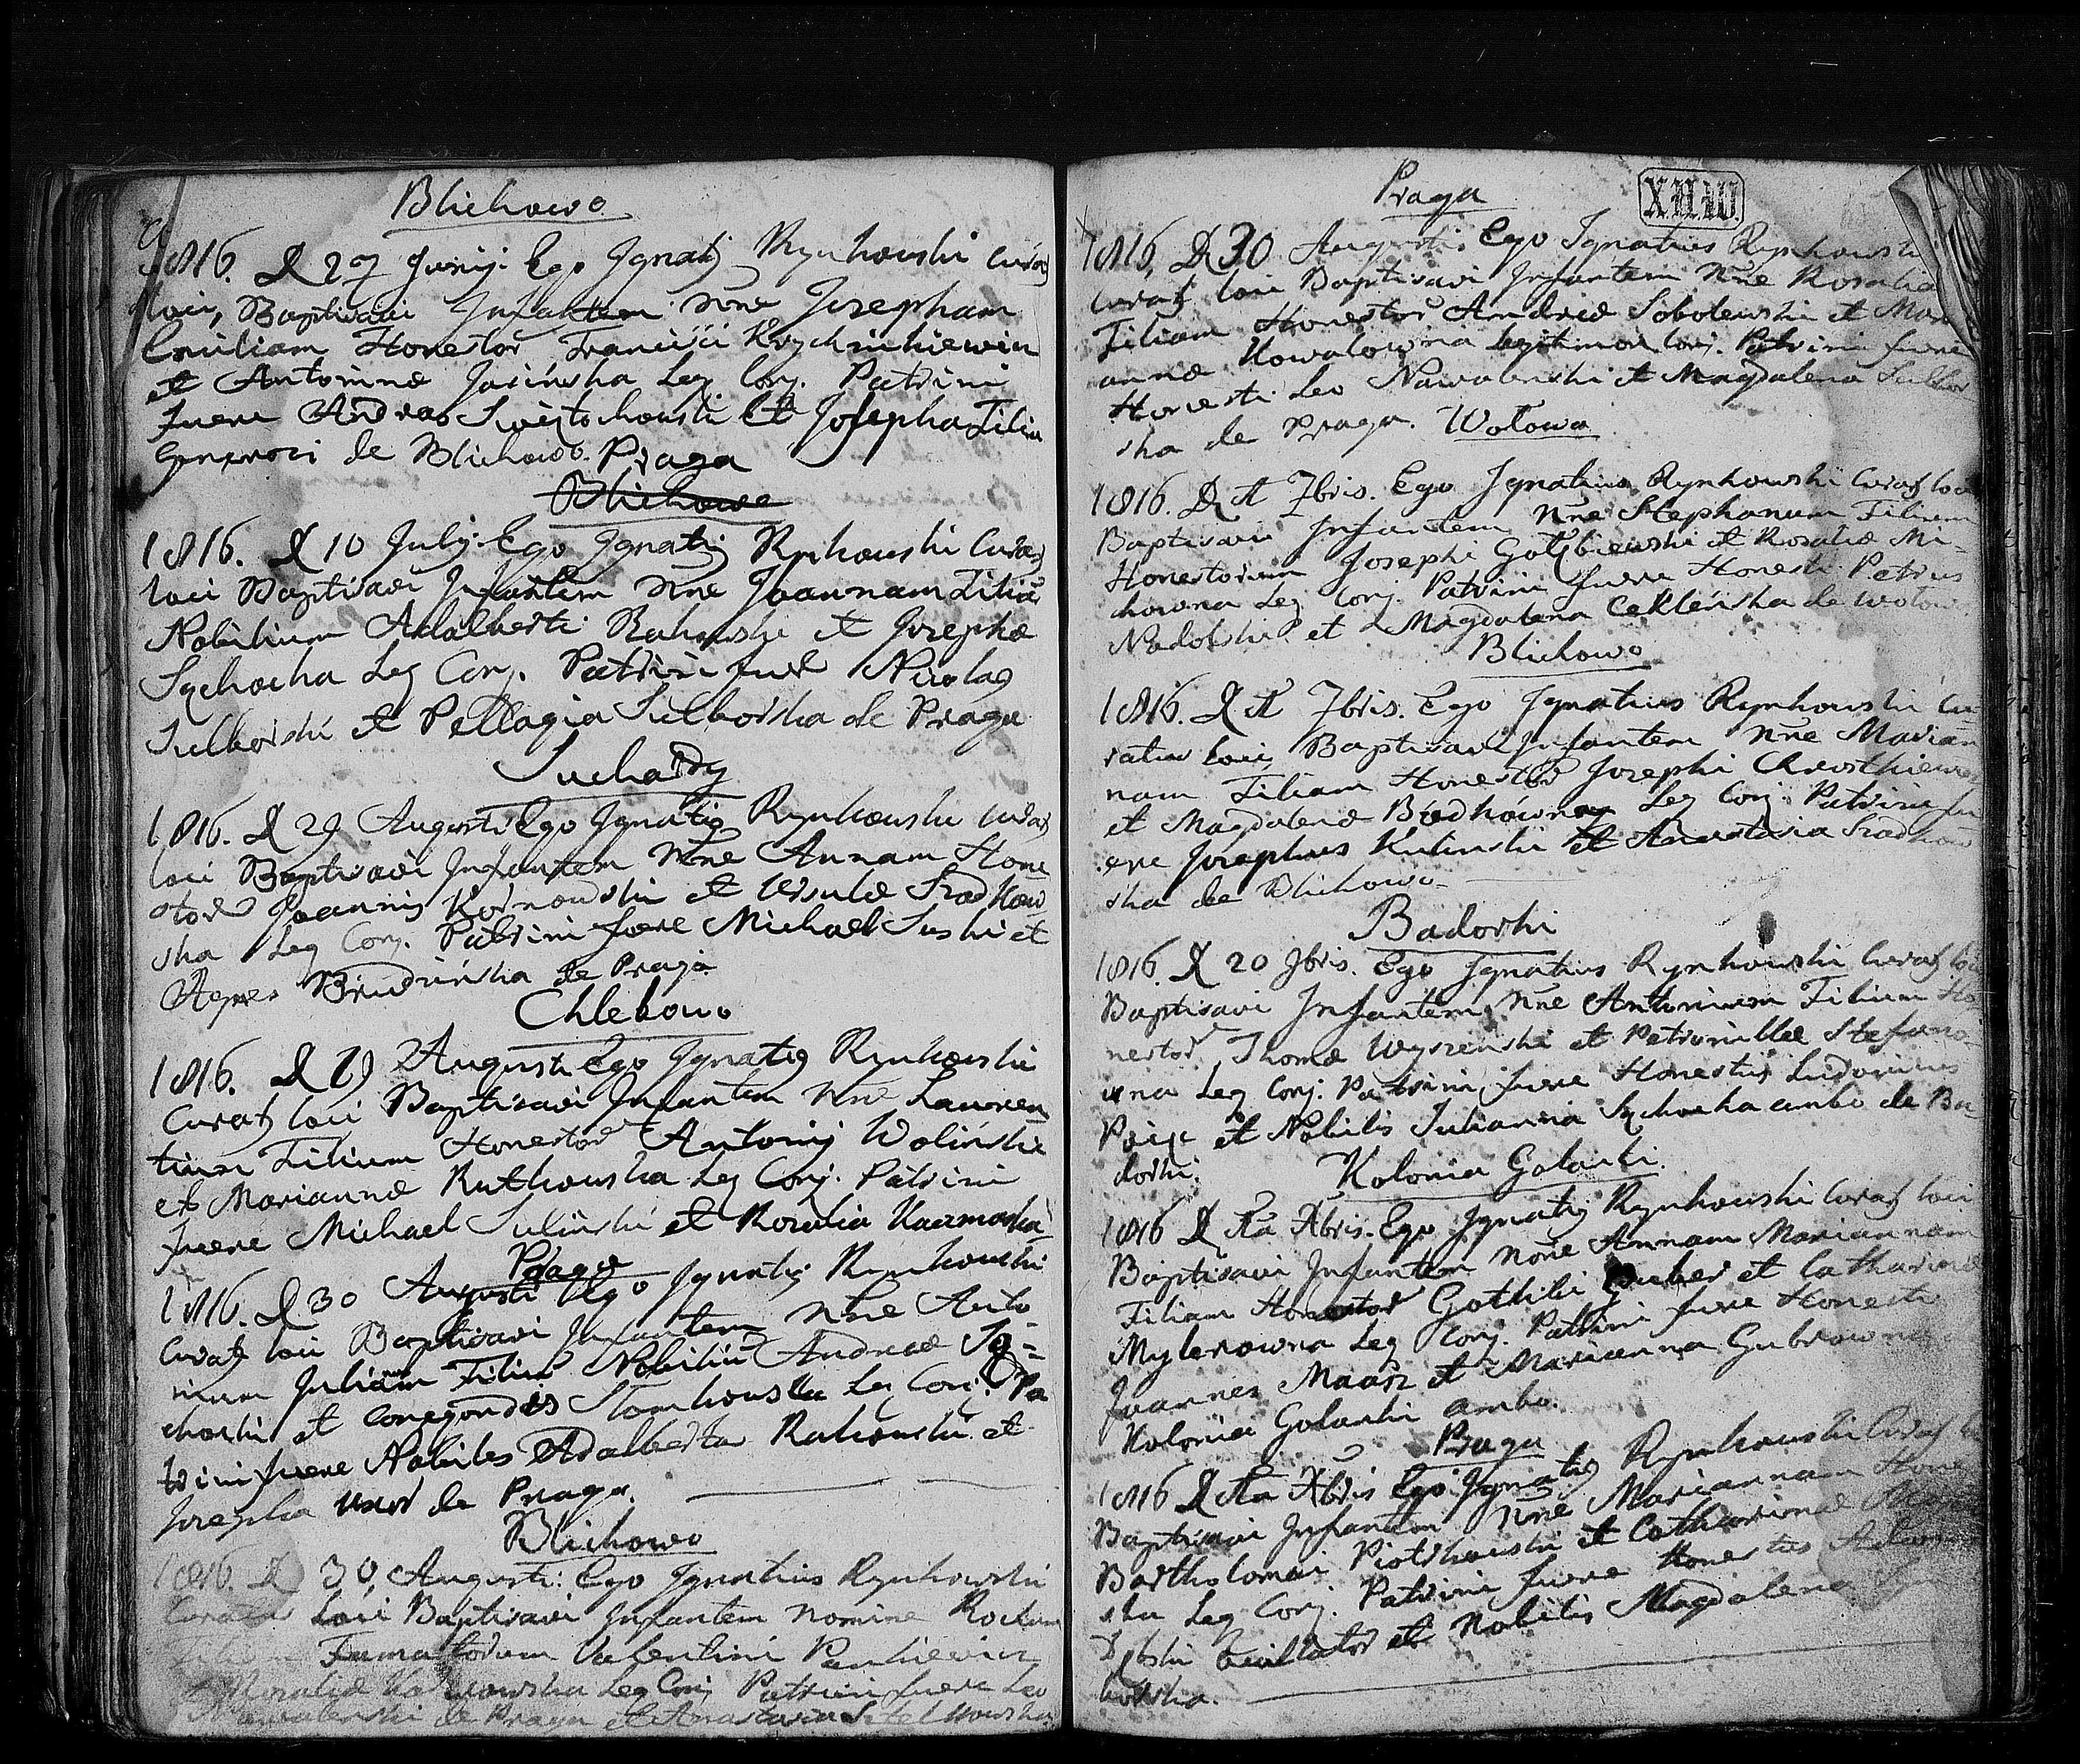 Blichowo
1816. D 27 Junij. Ego Ignatij Rynkowski Curatꝰ
loci, Baptisavi Infantem Nne Josepham
Emiliam Honestor Francisci Krychnikiewicz
et Antoninæ Jasińska Leg Conj. Patrini
fuere Andreas Swiętochowski et Josepha Filia
de Blichowo. Praga
Blichowo
1816. D 10 July. Ego Ignatij Rynkowski Curatꝰ
loci Baptisavi Infantem Nne Joannam Filiã
Nobilium Adalberti Rakowski et Josephæ
Sychocka Leg Conj. Patrini fuere Nicolaꝰ
Sulkorski et Pellagia Sulborska de Praga
Suchardy
1816. D 29 Augusti Ego Ignatiꝰ Rynkowski Curatꝰ
loci Baptisavi Infantem Nne Annam Hone
stor Joannis Kornowski et Ursulæ Szadkow
ska Leg Conj. Patrini fuere Michael Suski et
Agnes Brudzińska de Praga
Chlebowo
1816. D 29 Augusti Ego Ignatiꝰ Rynkowski
Curatꝰ loci Baptisavi Infantem Nne Lauren
tium Filium Honestor Antonij Wolinski
et Mariannæ Rutkowska Leg Conj. Patrini
fuere Michael Suliński et Rozalia Kaczmarka
Praga
1816. D 30 Augusti Ego Ignatiꝰ Rynkowski
Curatꝰ loci Baptisavi Infantem Nne Anto
nium Julianum Filiũ Nobiliũ Andreæ Sy=
chocki et Conegondis Slomkowska Leg Conj. Pa
trini fuere Nobiles Adalbertus Rakowski et
Josepha Uxor de Praga.
Blichowo
1816. D 30 Augusti. Ego Ignatius Rynkowski
Curatus Loci Baptisavi Infantem nomine Rochum
Filium Famatorum Valentini Pankiewicz
et Rosaliæ Leg Conj Patrini fuere Leo
Nawalenski de Praga et Anastasia
Praga
XII.IV.
1816. D 30 Augusti Ego Ignatius Rynkowski
Curatꝰ loci Baptisavi Infantem Nne Rosalia
Filiam Honestor Andreæ Sobolewski et Mari
annæ Kowalowna Legitimor Conj. Patrini fuere
Honesti Leo Nawalenski et Magdalena Sulbor
ska de Praga. Wołowa
1816. D A 7bris. Ego Ignatius Rynkowski Curatꝰ loci
Baptisavi Infantem Nne Stephanum Filium
Honestorum Josephi Gołębiewski et Rosaliæ Mi=
chowna Leg Conj. Patrini fuere Honesti Petrus
Nadolski et Magdalena Ceklenska de Wołowa
Blichowo
1816. D A 7bris. Ego Ignatius Rynkowski Cu
ratus loci Baptisavi Infantem Nne Marian
nam Filiam Honestor Josephi
et Magdalenæ Leg Conj. Patrini fu
ere Josephus Kulinski et Anastasia Szadkow
ska de Blichowo
Badorki
1816. D 20 9bris. Ego Ignatius Rynkowski Curatꝰ loci
Baptisavi Infantem Nne Antonium Filium Ho
nestor Thomæ Wyszenski et Petronillæ Stefano
wna Leg Conj. Patrini fuere Honestus Ludovicus
et Nobilis Julianna Sychocka ambo de Ba
dorki.
Kolonia Golanki.
1816 D Xbris. Ego Ignatiꝰ Rynkowski Curatꝰ loci
Baptisavi Infantem Nne Annam Mariannam
Filiam Honestor Gotlibi Guber et Catharinæ
Mylerowna Leg Conj. Patrini fuere Honesti
Joannes Maasz et Marianna Gubrowna
Kolonia Golanki ambo.
Praga
1816 D Xbris Ego Ignatiꝰ Rynkowski Curatꝰ
Baptisavi Infantem Nne Mariannam Hone
Bartholomæi Piotrkowski et Catharinæ
ska Leg Conj. Patrini fuere Honestus
et Nobilis Magdalena
borska.